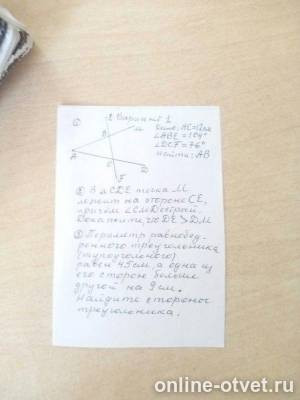 ① Вариант 1
E
B M
A
C
D
F
Дано: AC=12см
∠ABE=104°
∠DCF=76°
Найти: AB
② В △CDE точка M
лежит на стороне CE,
причём ∠CMD острый.
Докажите, что DE>DM
③ Периметр равнобед-
ренного треугольника
(тупоугольного)
равен 45см, а одна из
его сторон больше
другой на 9см.
Найдите стороны
треугольника.
online-otvet.ru